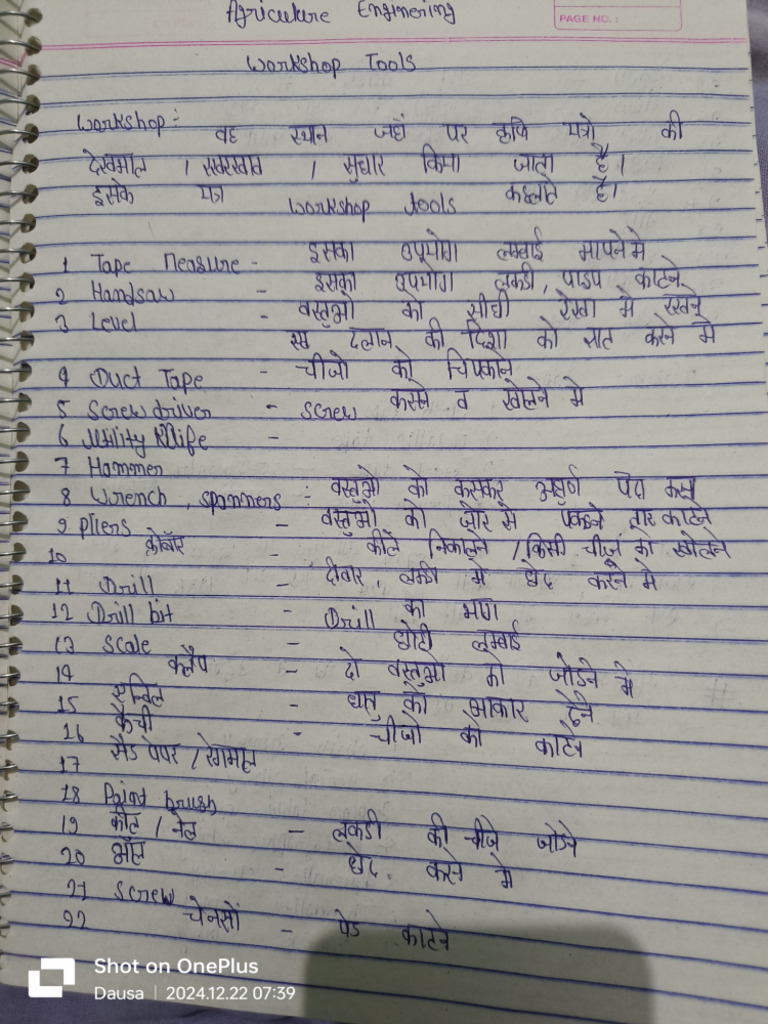 Agriculture Enginering
PAGE NO. :
Workshop Tools
Workshop :- वह स्थान जहाँ पर कृषि यंत्रो की
देखभाल / रखरखाव / सुधार किया जाता है।
इसके यंत्र Workshop tools कहलाते है।
1 Tape Measure - इसका उपयोग लम्बाई मापने मे
2 Handsaw - इसका उपयोग लकडी, पाइप काटने
3 Level - वस्तुओ को सीधी रेखा मे रखने
ढलान की दिशा को करने मे
4 Duct Tape - चीजो को चिपकाने
5 Screw driver - screw कसने व खोलने मे
6 Utility Knife -
7 Hammer
8 Wrench, spanners : वस्तुओ को कसकर
9 Pliers - वस्तुओ को जोर से पकडने तार काटने
10 क्रोबार - कीले निकालने / किसी चीज को खोलने
11 Drill - दीवार, लकडी मे छेद करने मे
12 Drill bit - Drill का भाग
13 Scale - छोटी लम्बाई
14 क्लैंप - दो वस्तुओ को जोडने मे
15 एन्विल - धातु को आकार देने
16 कैंची - चीजो को काटने
17 सैंड पेपर / रेगमाल
18 Paint brush
19 कील / नेल - लकडी की चीजे जोडने
20 ऑल - छेद करने मे
21 Screw
22 चेनसॉ - पेड काटने
Shot on OnePlus
Dausa | 2024.12.22 07:39